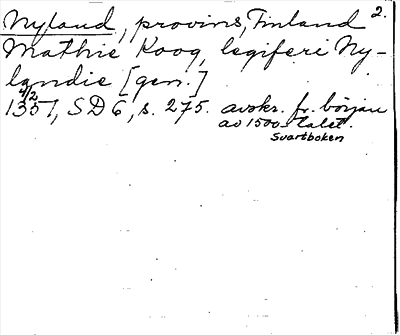 Nyland, provins, Finland 2.
Mathie Koog, legiferi Ny-
landie [gen.]
4/2
1351, SD 6, s. 275. avskr. fr. början
av 1500-talet.
Svartboken